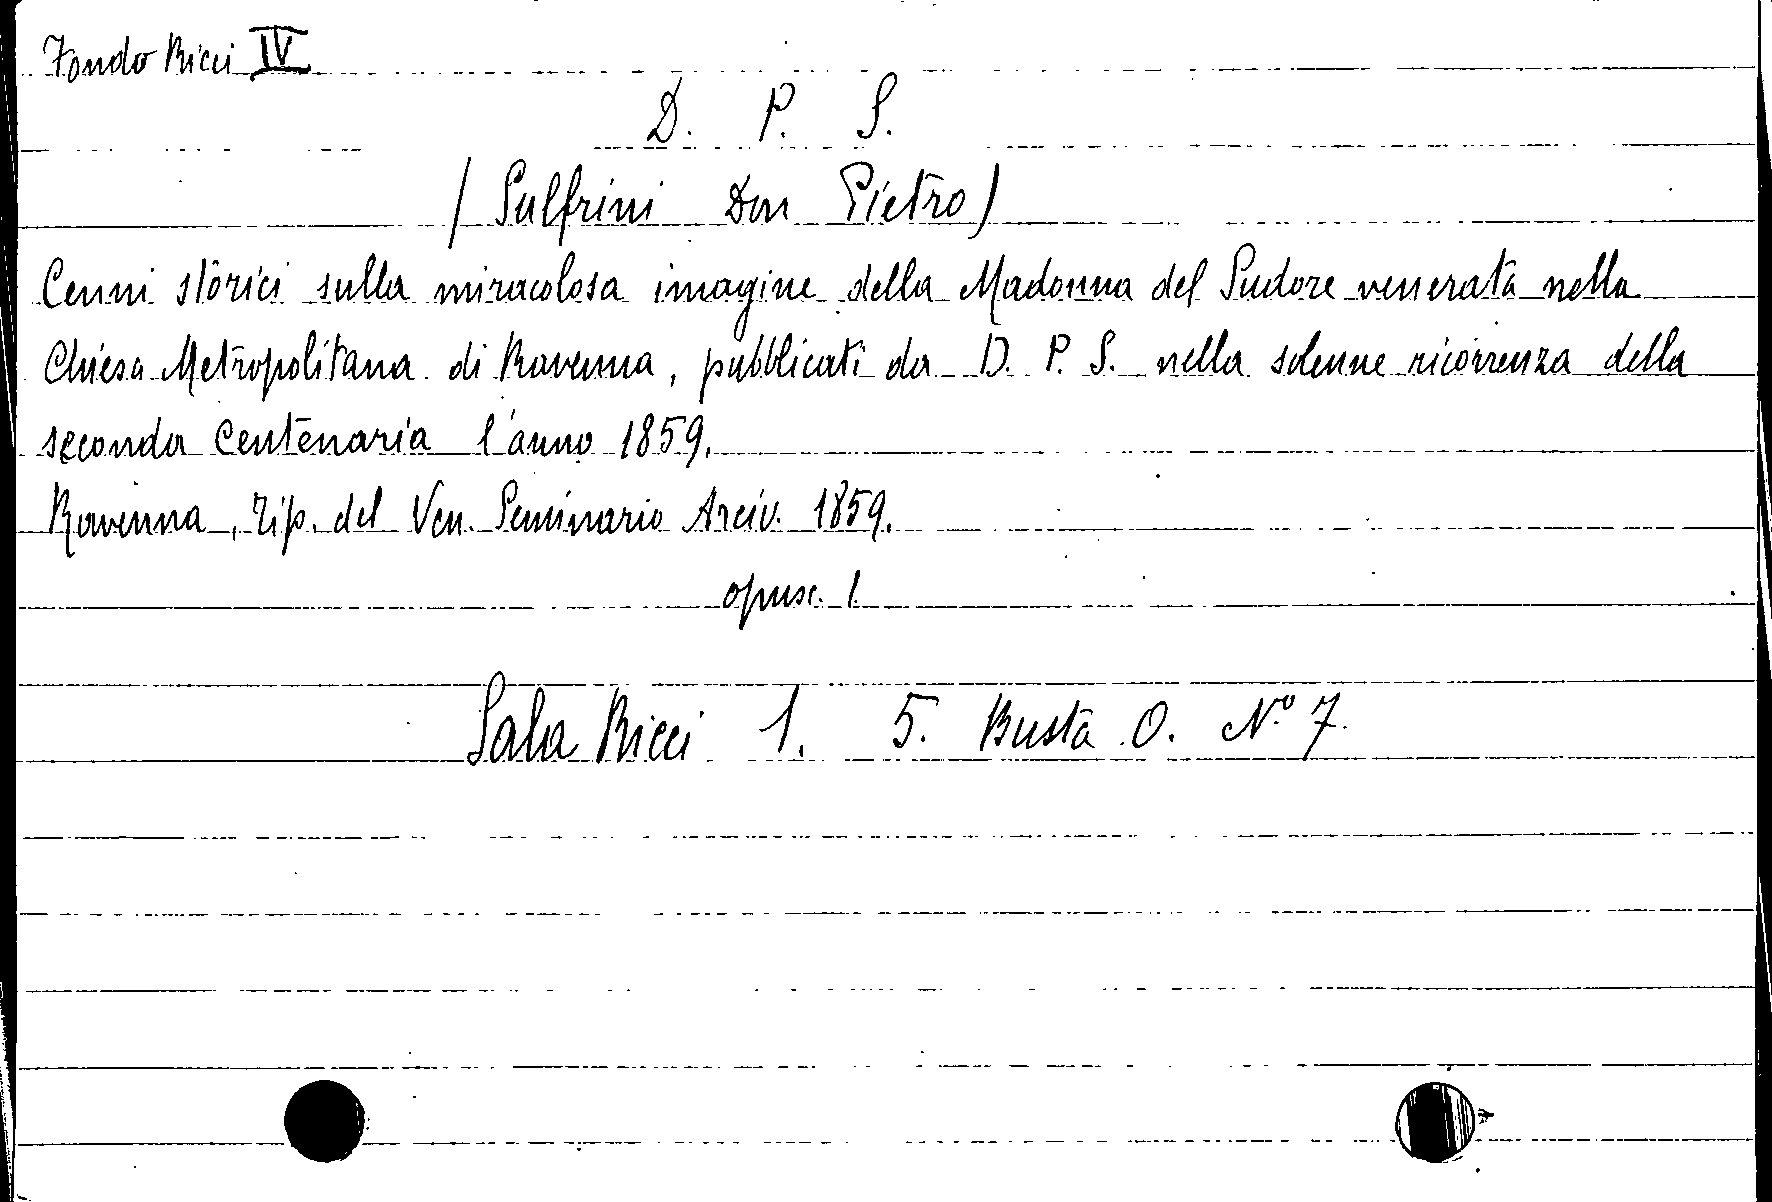 Fondo Ricci IV
D. P. S.
(Sulfrini Don Pietro)
Cenni storici sulla miracolosa imagine della Madonna del Sudore venerata nella
Chiesa Metropolitana di Ravenna, pubblicati da D. P. S. nella solenne ricorrenza della
seconda Centenaria l'anno 1859.
Ravenna, Tip. del Ven. Seminario Arciv. 1859.
opusc. 1.
Sala Ricci 1. 5. Busta O. N.º 7.